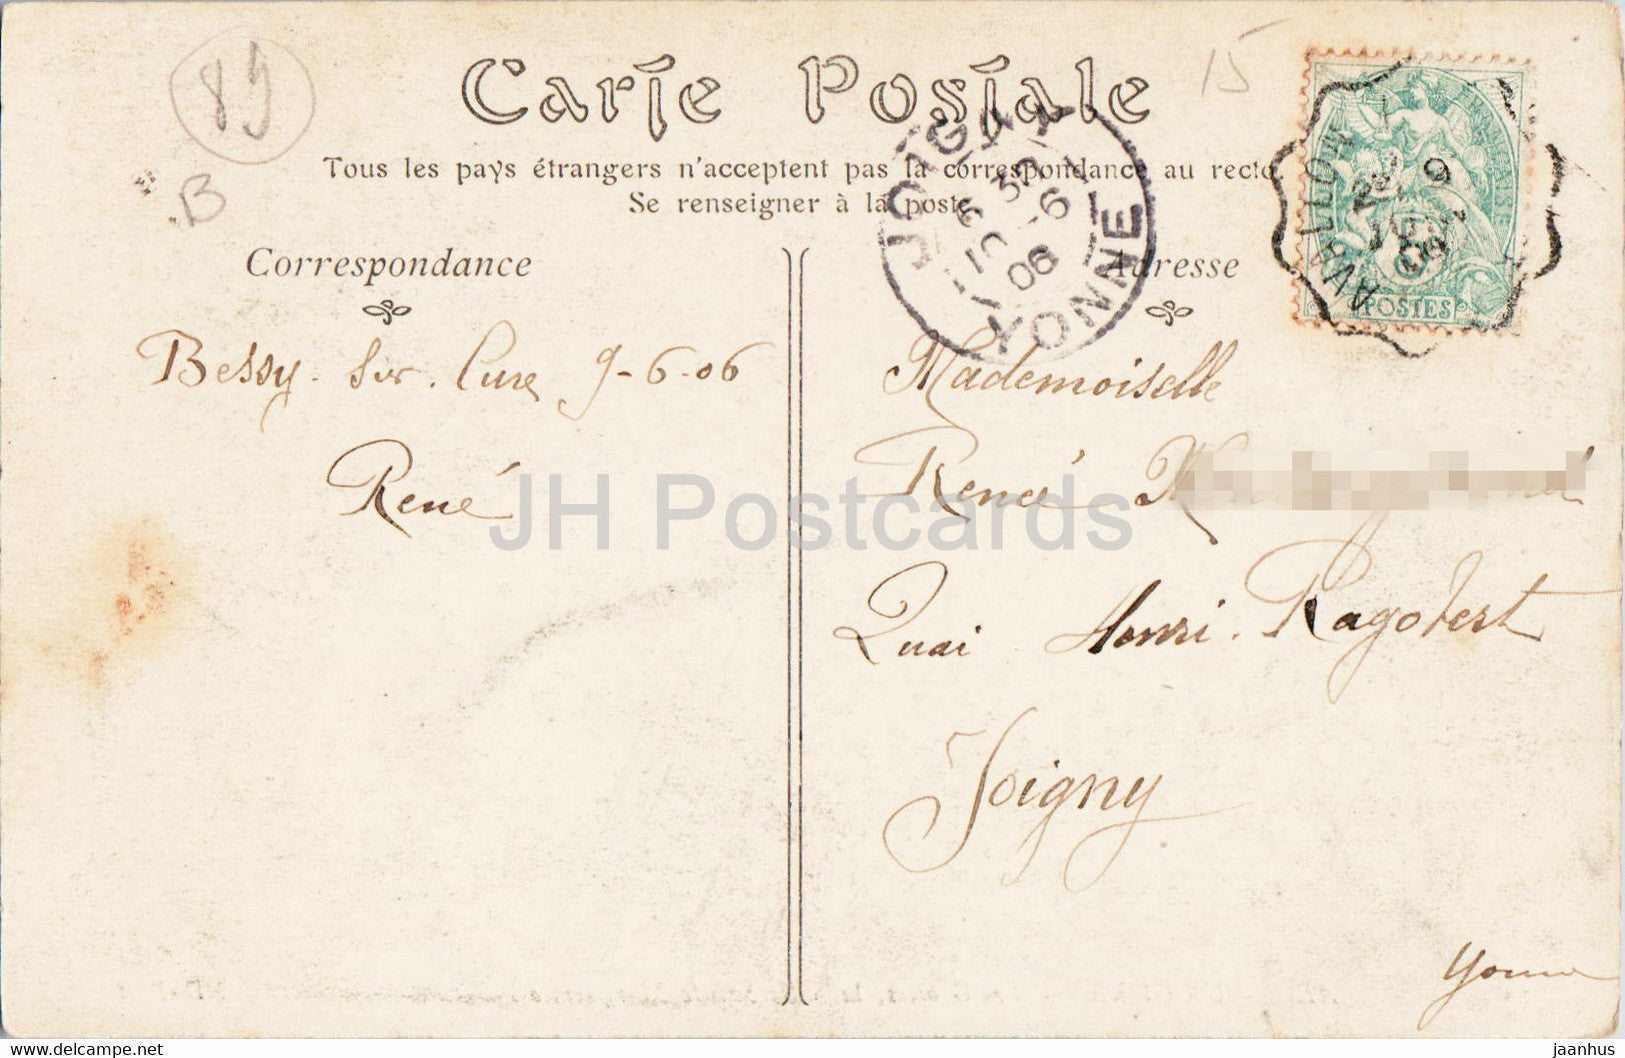 89
B
15
Carte Postale
Tous les pays étrangers n'acceptent pas la correspondance au recto.
Se renseigner à la poste
Correspondance
Bessy. Sur. Cure 9-6-06
René
Adresse
Mademoiselle
Renée
Quai Henri. Ragobert
Joigny
Yonne
JOIGNY
YONNE
AVALLON
POSTES
JH Postcards
https://www.delcampe.net
jaanhus